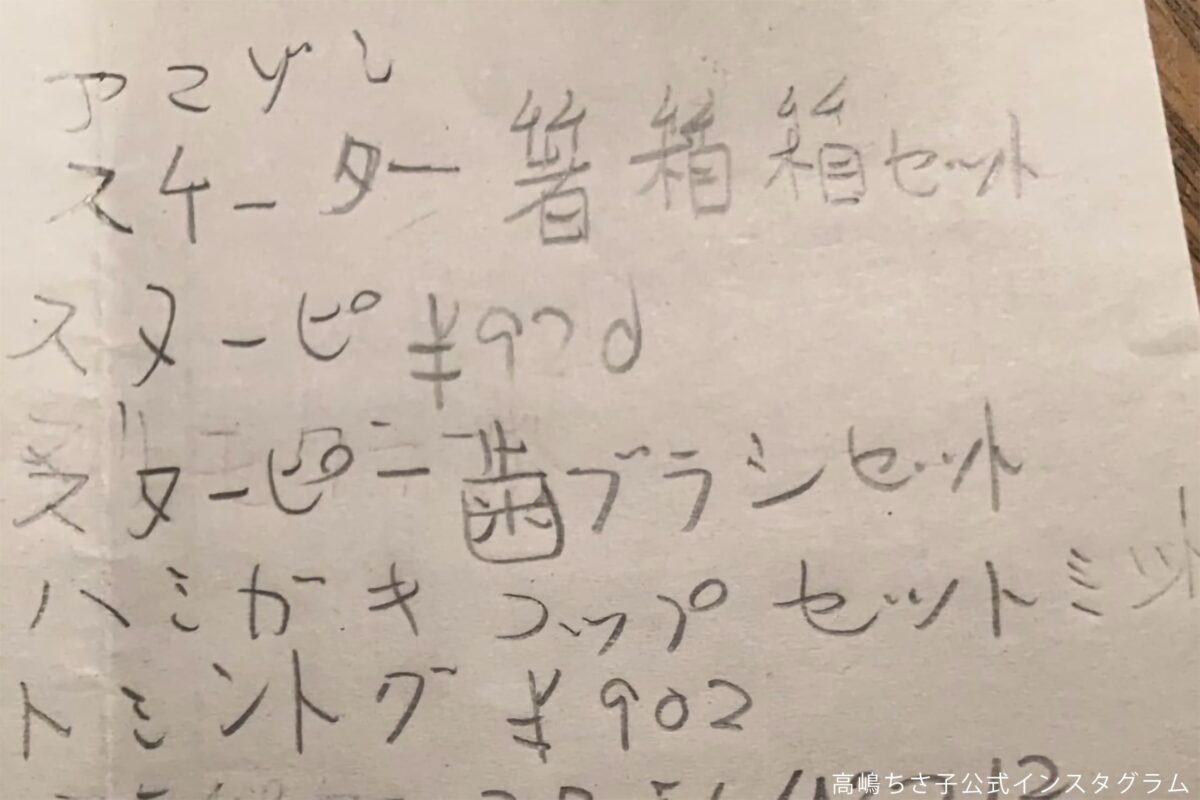 アマゾン
スケーター 箸箱箱セット
スヌーピ ¥970
スヌーピー歯ブラシセット
ハミガキ コップ セットミッ
トミントグ ¥902
高嶋ちさ子公式インスタグラム